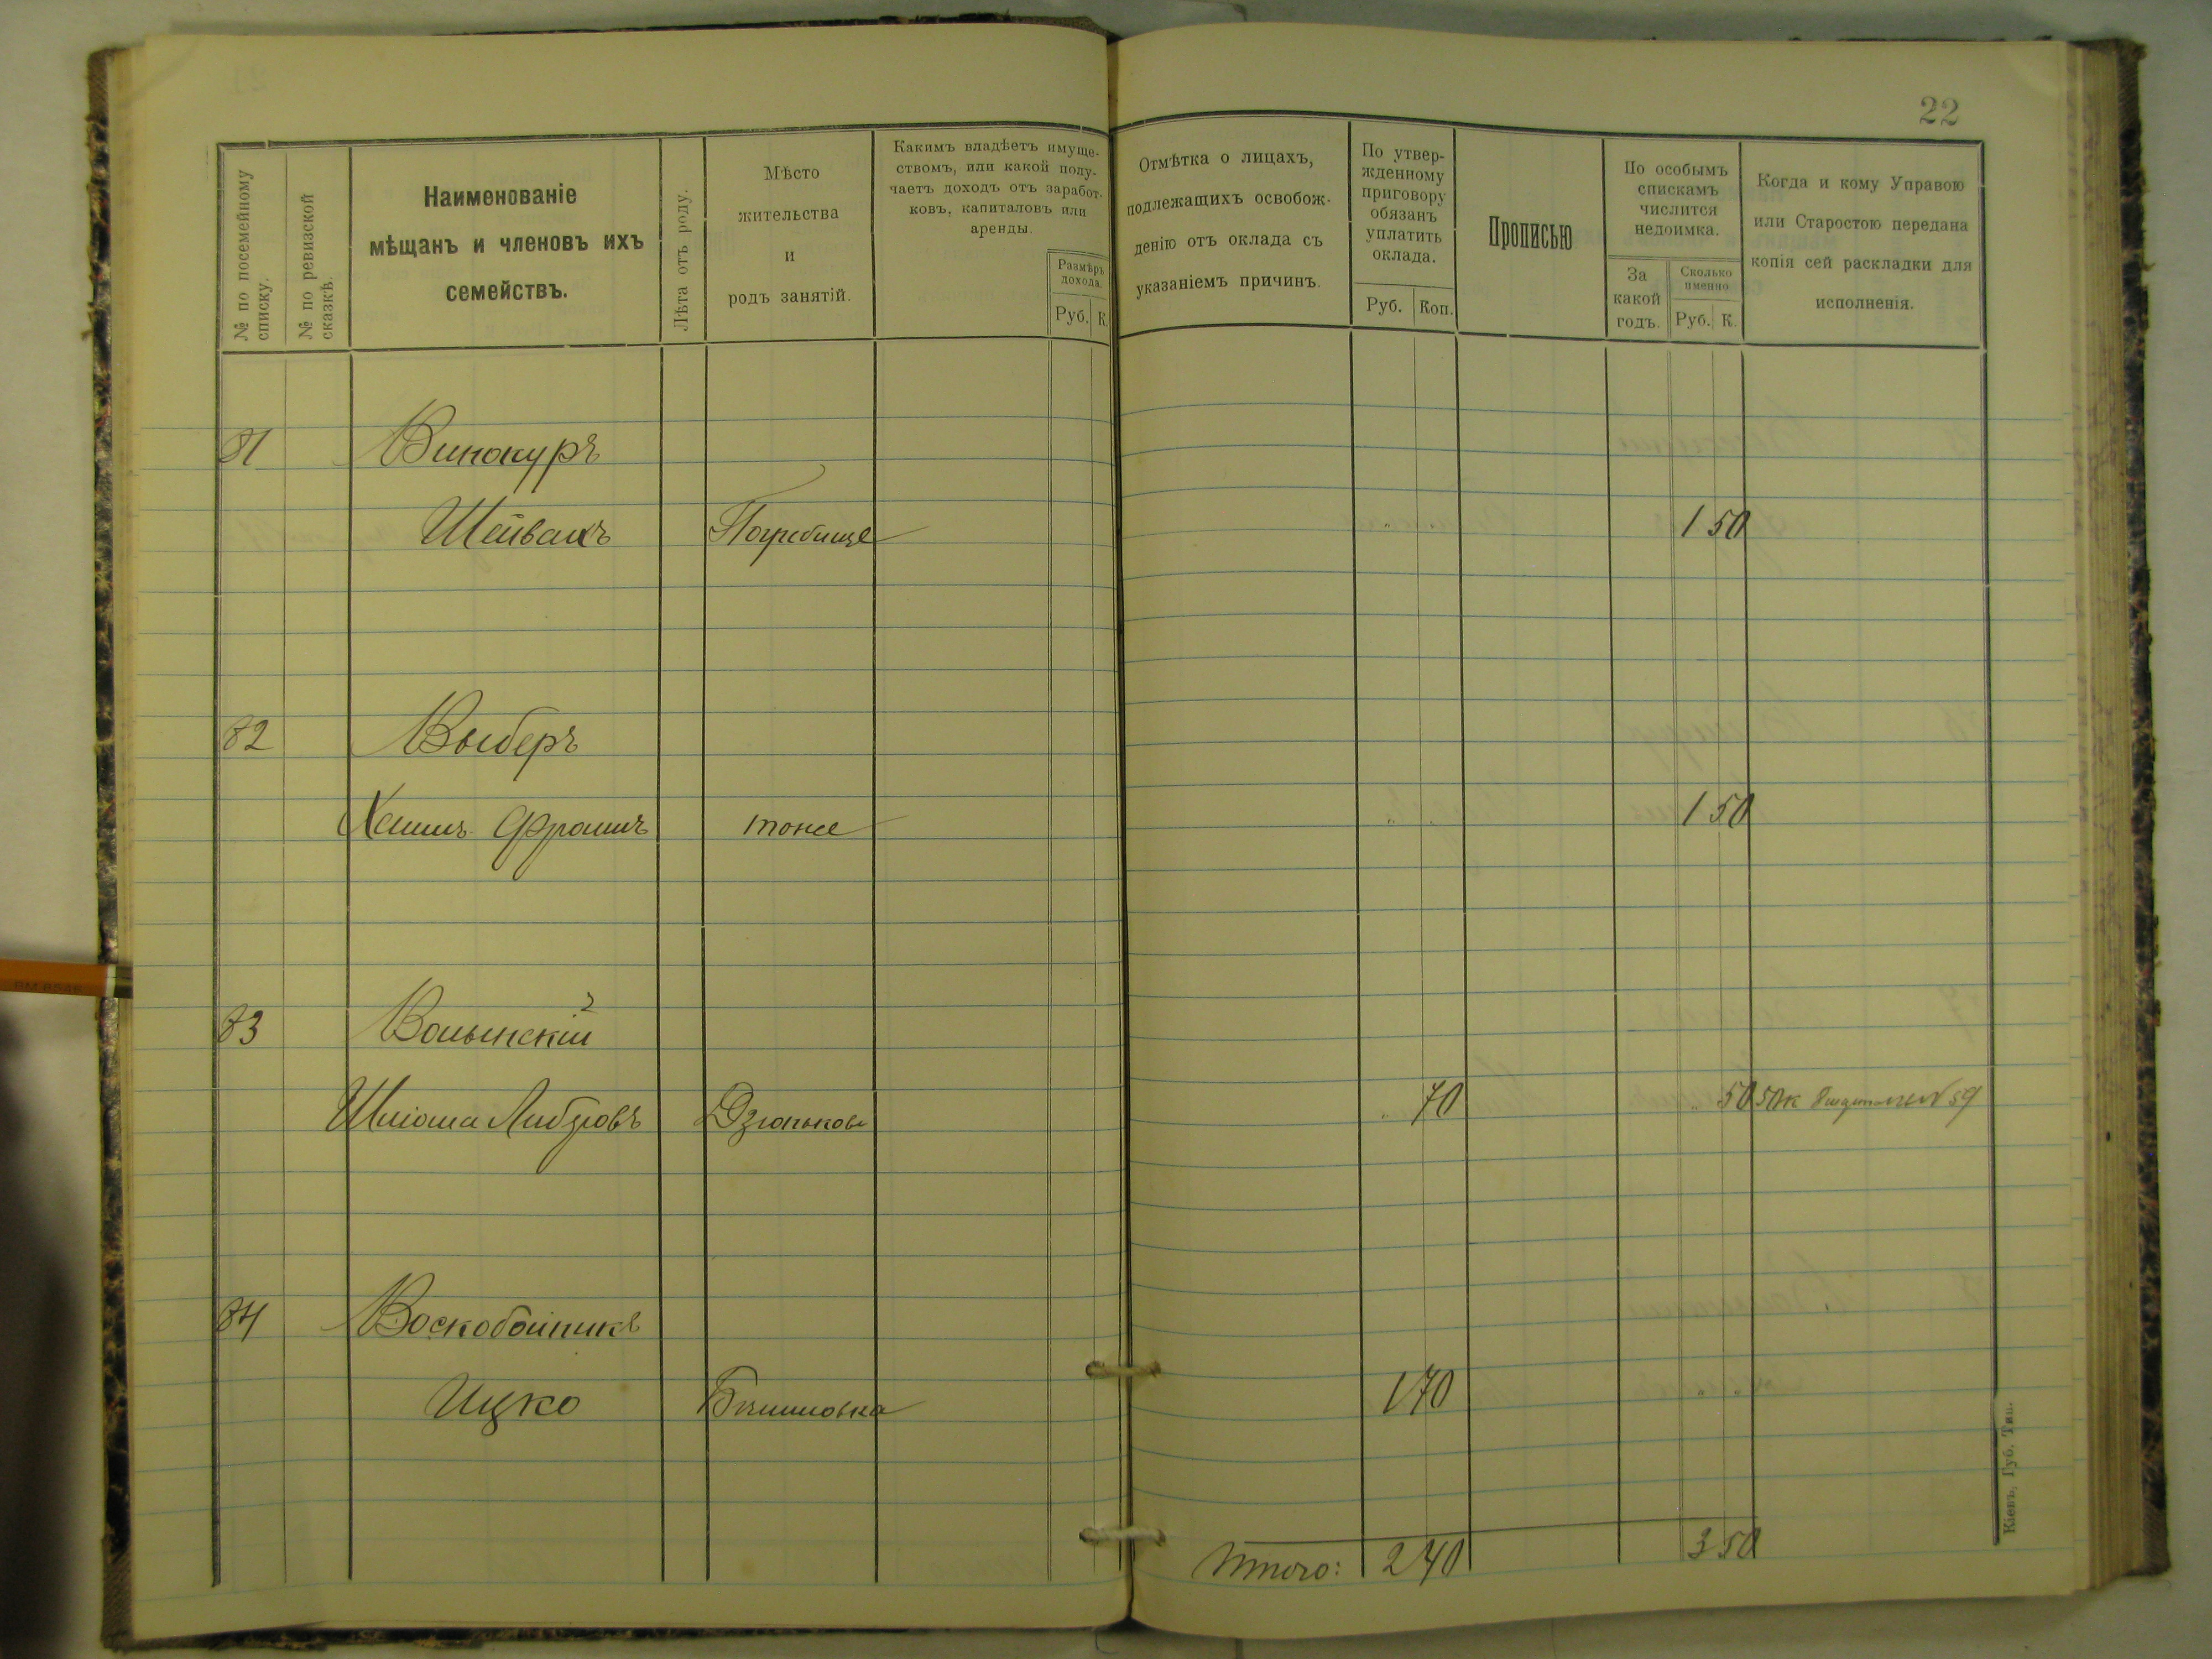 22
№ по посемейному списку.
№ по ревизской сказкѣ.
Наименованіе
мѣщанъ и членовъ ихъ
семействъ.
Лѣта отъ роду.
Мѣсто
жительства
и
родъ занятій.
Какимъ владѣетъ имуще-
ствомъ, или какой полу-
чаетъ доходъ отъ заработ-
ковъ, капиталовъ или
аренды.
Размѣръ
дохода.
Руб. К.
Отмѣтка о лицахъ,
подлежащихъ освобож-
денію отъ оклада съ
указаніемъ причинъ.
По утвер-
жденному
приговору
обязанъ
уплатить
оклада.
Руб. Коп.
Прописью
По особымъ
спискамъ
числится
недоимка.
За
какой
годъ.
Сколько
именно
Руб. К.
Когда и кому Управою
или Старостою передана
копія сей раскладки для
исполненія.
81 Винокуръ
Шейвахъ Погребище „ „ 1 50
82 Выберъ
Хаимъ Фроимъ тоже „ „ 1 50
83 Волынскій
Шліома Либровъ Дзюньковъ „ 70 „ 50 50 к 59
84 Воскобойникъ
Ицко 1 70 „ „
Итого: 2 40 3 50
Кіевъ, Губ. Тип.